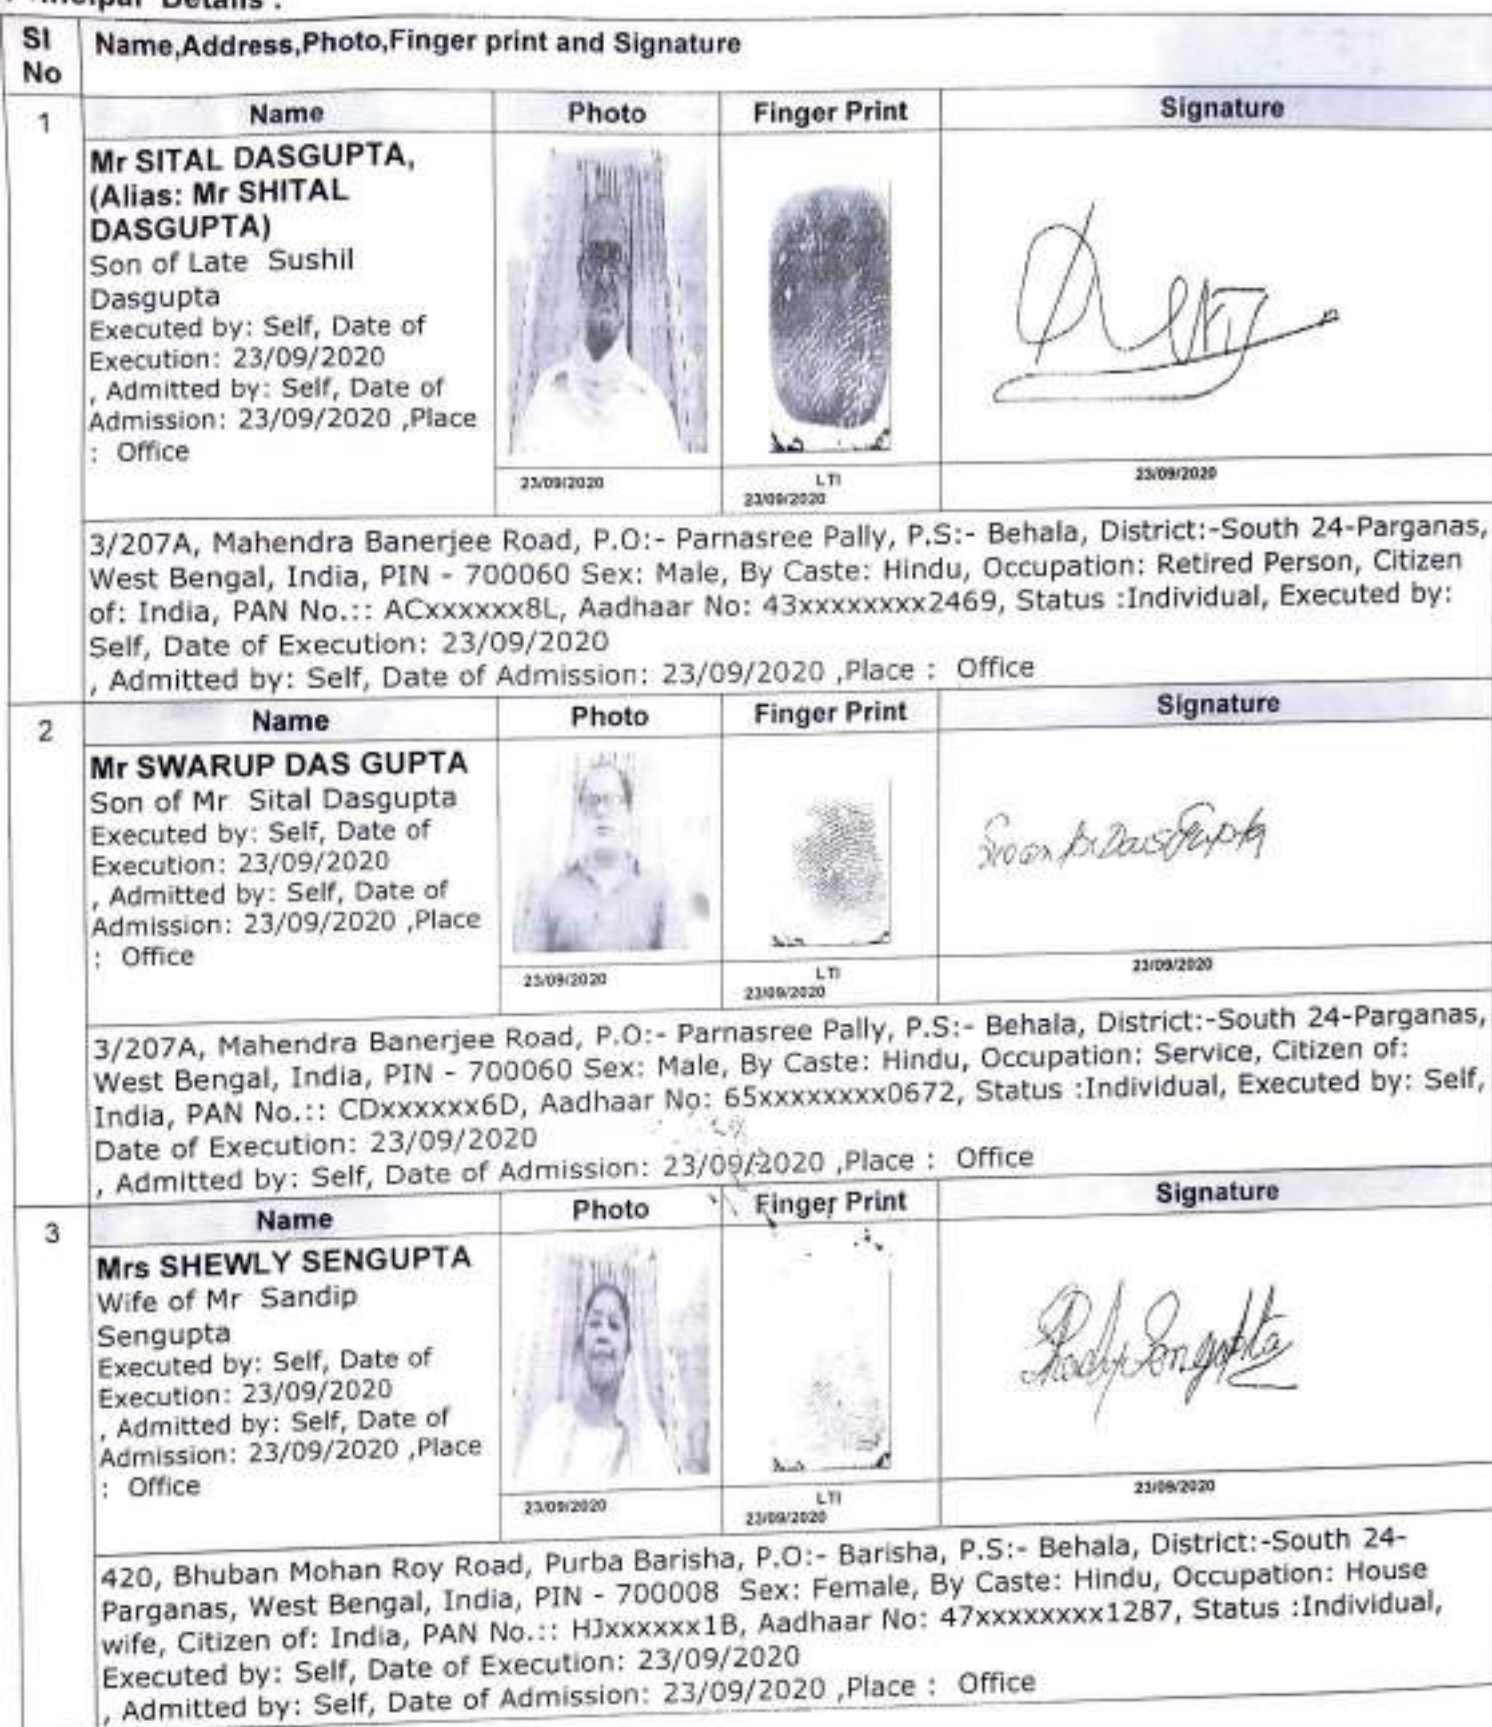 Principal Details :
Sl No
Name,Address,Photo,Finger print and Signature
1
Name Photo Finger Print Signature
Mr SITAL DASGUPTA,
(Alias: Mr SHITAL
DASGUPTA)
Son of Late Sushil
Dasgupta
Executed by: Self, Date of
Execution: 23/09/2020
, Admitted by: Self, Date of
Admission: 23/09/2020 ,Place
: Office
23/09/2020
LTI
23/09/2020
23/09/2020
3/207A, Mahendra Banerjee Road, P.O:- Parnasree Pally, P.S:- Behala, District:-South 24-Parganas,
West Bengal, India, PIN - 700060 Sex: Male, By Caste: Hindu, Occupation: Retired Person, Citizen
of: India, PAN No.:: ACxxxxxx8L, Aadhaar No: 43xxxxxxxx2469, Status :Individual, Executed by:
Self, Date of Execution: 23/09/2020
, Admitted by: Self, Date of Admission: 23/09/2020 ,Place : Office
2
Name Photo Finger Print Signature
Mr SWARUP DAS GUPTA
Son of Mr Sital Dasgupta
Executed by: Self, Date of
Execution: 23/09/2020
, Admitted by: Self, Date of
Admission: 23/09/2020 ,Place
: Office
23/09/2020
LTI
23/09/2020
23/09/2020
3/207A, Mahendra Banerjee Road, P.O:- Parnasree Pally, P.S:- Behala, District:-South 24-Parganas,
West Bengal, India, PIN - 700060 Sex: Male, By Caste: Hindu, Occupation: Service, Citizen of:
India, PAN No.:: CDxxxxxx6D, Aadhaar No: 65xxxxxxxx0672, Status :Individual, Executed by: Self,
Date of Execution: 23/09/2020
, Admitted by: Self, Date of Admission: 23/09/2020 ,Place : Office
3
Name Photo Finger Print Signature
Mrs SHEWLY SENGUPTA
Wife of Mr Sandip
Sengupta
Executed by: Self, Date of
Execution: 23/09/2020
, Admitted by: Self, Date of
Admission: 23/09/2020 ,Place
: Office
Sengupta
23/09/2020
LTI
23/09/2020
23/09/2020
420, Bhuban Mohan Roy Road, Purba Barisha, P.O:- Barisha, P.S:- Behala, District:-South 24-
Parganas, West Bengal, India, PIN - 700008 Sex: Female, By Caste: Hindu, Occupation: House
wife, Citizen of: India, PAN No.:: HJxxxxxx1B, Aadhaar No: 47xxxxxxxx1287, Status :Individual,
Executed by: Self, Date of Execution: 23/09/2020
, Admitted by: Self, Date of Admission: 23/09/2020 ,Place : Office